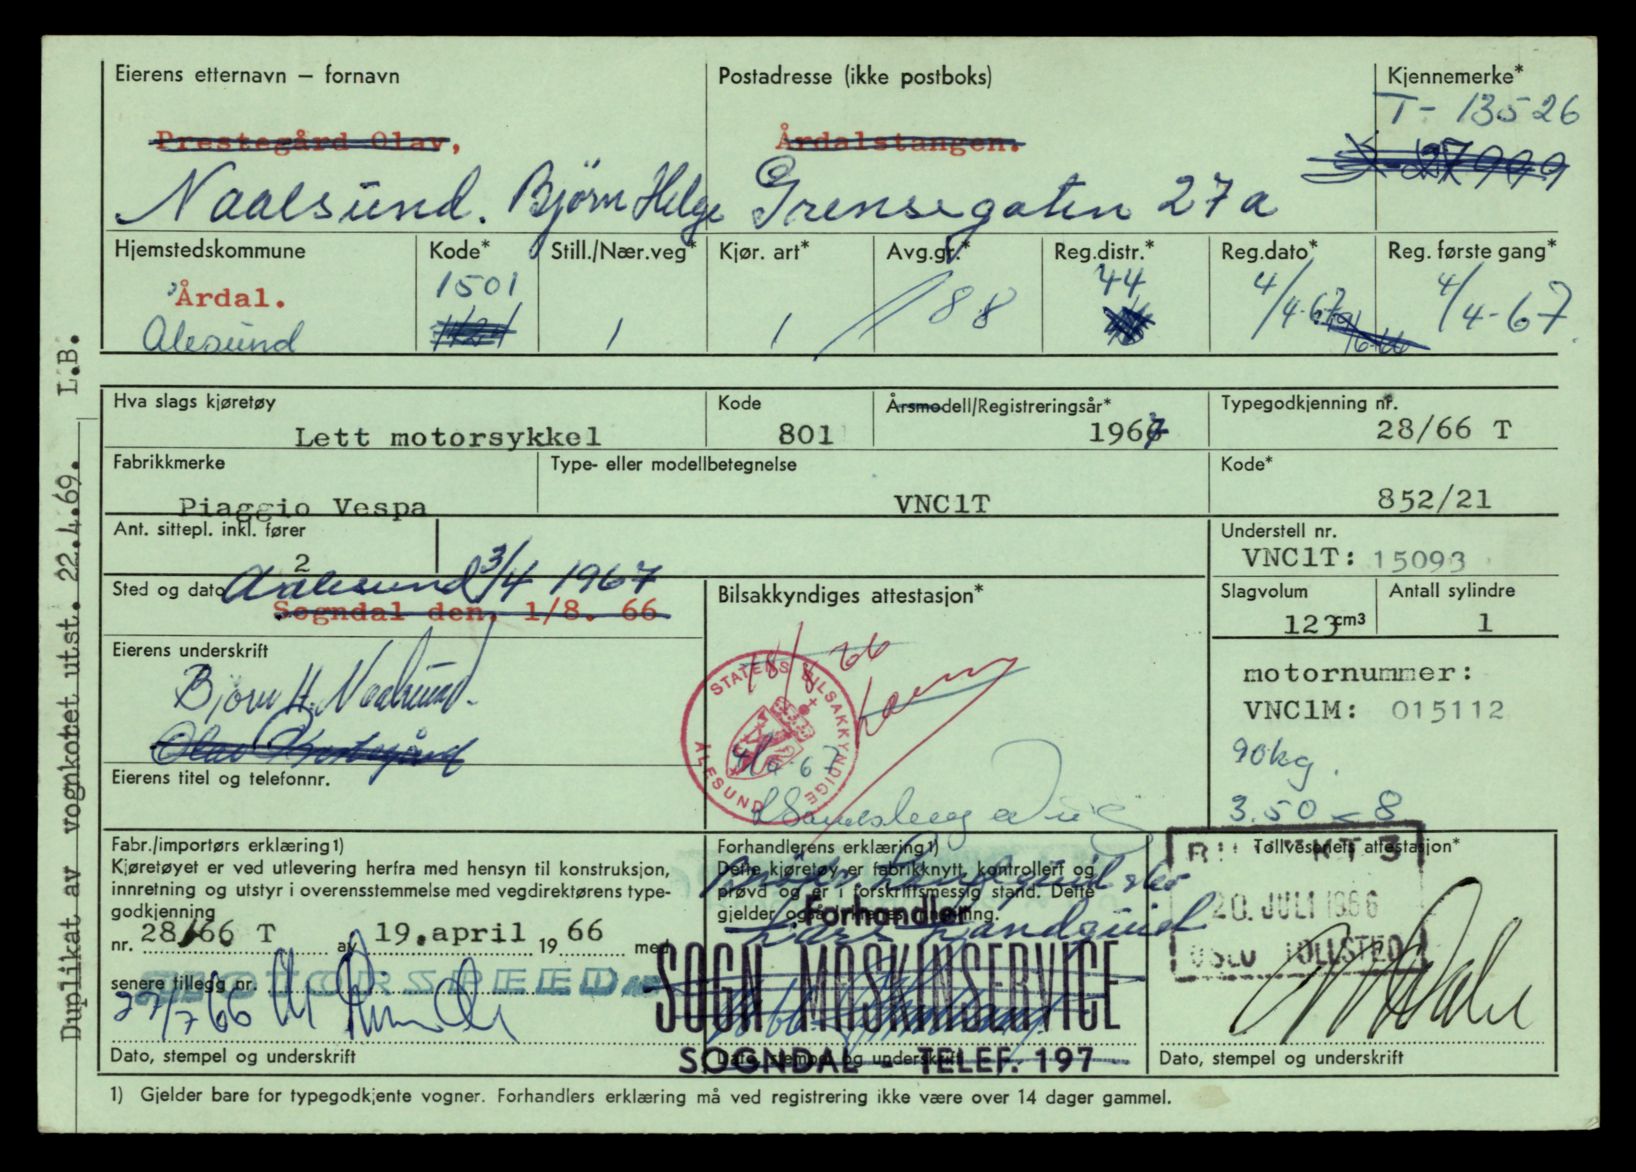 Eierens etternavn – fornavn
Postadresse (ikke postboks)
Kjennemerke*
T- 13526
Prestegård Olav,
Årdalstangen.
Naalsund. Bjørn Helge
Grensegaten 27a
Hjemstedskommune
Kode*
Still./Nær.veg*
Kjør. art*
Avg.gr.*
Reg.distr.*
Reg.dato*
Reg. første gang*
Årdal.
1501
44
4/4-67
4/4-67
Alesund
1
1
88
Hva slags kjøretøy
Kode
Årsmodell/Registreringsår*
Typegodkjenning nr.
Lett motorsykkel
801
1967
28/66 T
Fabrikkmerke
Type- eller modellbetegnelse
Kode*
Piaggio Vespa
VNC1T
852/21
Ant. sittepl. inkl. fører
2
Understell nr.
VNC1T: 15093
Sted og dato
Aalesund 3/4 1967
Sogndal den, 1/8. 66
Bilsakkyndiges attestasjon*
Slagvolum
Antall sylindre
123 cm3
1
Eierens underskrift
Bjørn H. Naalsund.
Olav Prestegård
18/8 66
STATENS BILSAKKYNDIGE
ÅLESUND
motornummer:
VNC1M: 015112
90kg.
3.50 - 8
Eierens titel og telefonnr.
Fabr./importørs erklæring 1)
Kjøretøyet er ved utlevering herfra med hensyn til konstruksjon,
innretning og utstyr i overensstemmelse med vegdirektørens type-
godkjenning
nr. 28/66 T av 19.april 1966 med
senere tillegg nr.
MOTORSPEED
27/7 66
Dato, stempel og underskrift
Forhandlerens erklæring 1)
Dette kjøretøy er fabrikknytt, kontrollert og
prøvd og er i forskriftsmessig stand. Dette
gjelder også
Forhandler
SOGN MASKINSERVICE
SOGNDAL - TELEF. 197
Dato, stempel og underskrift
Tollvesenets attestasjon*
20. JULI 1966
OSLO TOLLSTED
Dato, stempel og underskrift
1) Gjelder bare for typegodkjente vogner. Forhandlers erklæring må ved registrering ikke være over 14 dager gammel.
Duplikat av vognkortet utst. 22.4.69. L.B.